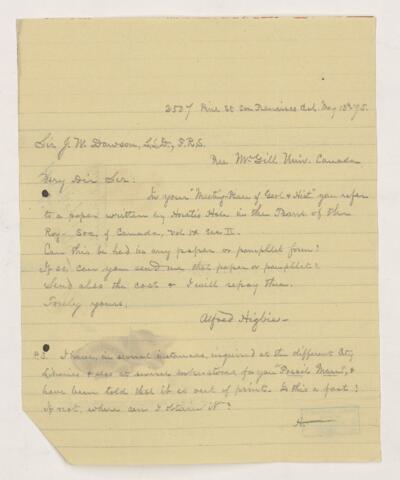 2507 Pine St San Francisco Cal. May 13th '95.
Sir J. W. Dawson, L.L.D., F.R.S.
McGill Univ. Canada
Very Dir Sir:
In your "Meeting-Place of Geol. & Hist" you refer
to a paper written by Horatio Hale in the Trans. of the
Roy. Soc. of Canada, Vol. IX Sec II.
Can this be had in any paper or pamphlet form?
If so, can you send me that paper or pamphlet?
Send also the cost & I will repay then.
Truly yours,
Alfred Higbie
P.S. I have, in several instances, inquired at the different City
Libraries & also at several bookstores for your "Fossil Men", &
have been told that it is out of print. Is this a fact?
If not, where can I obtain it?
H.